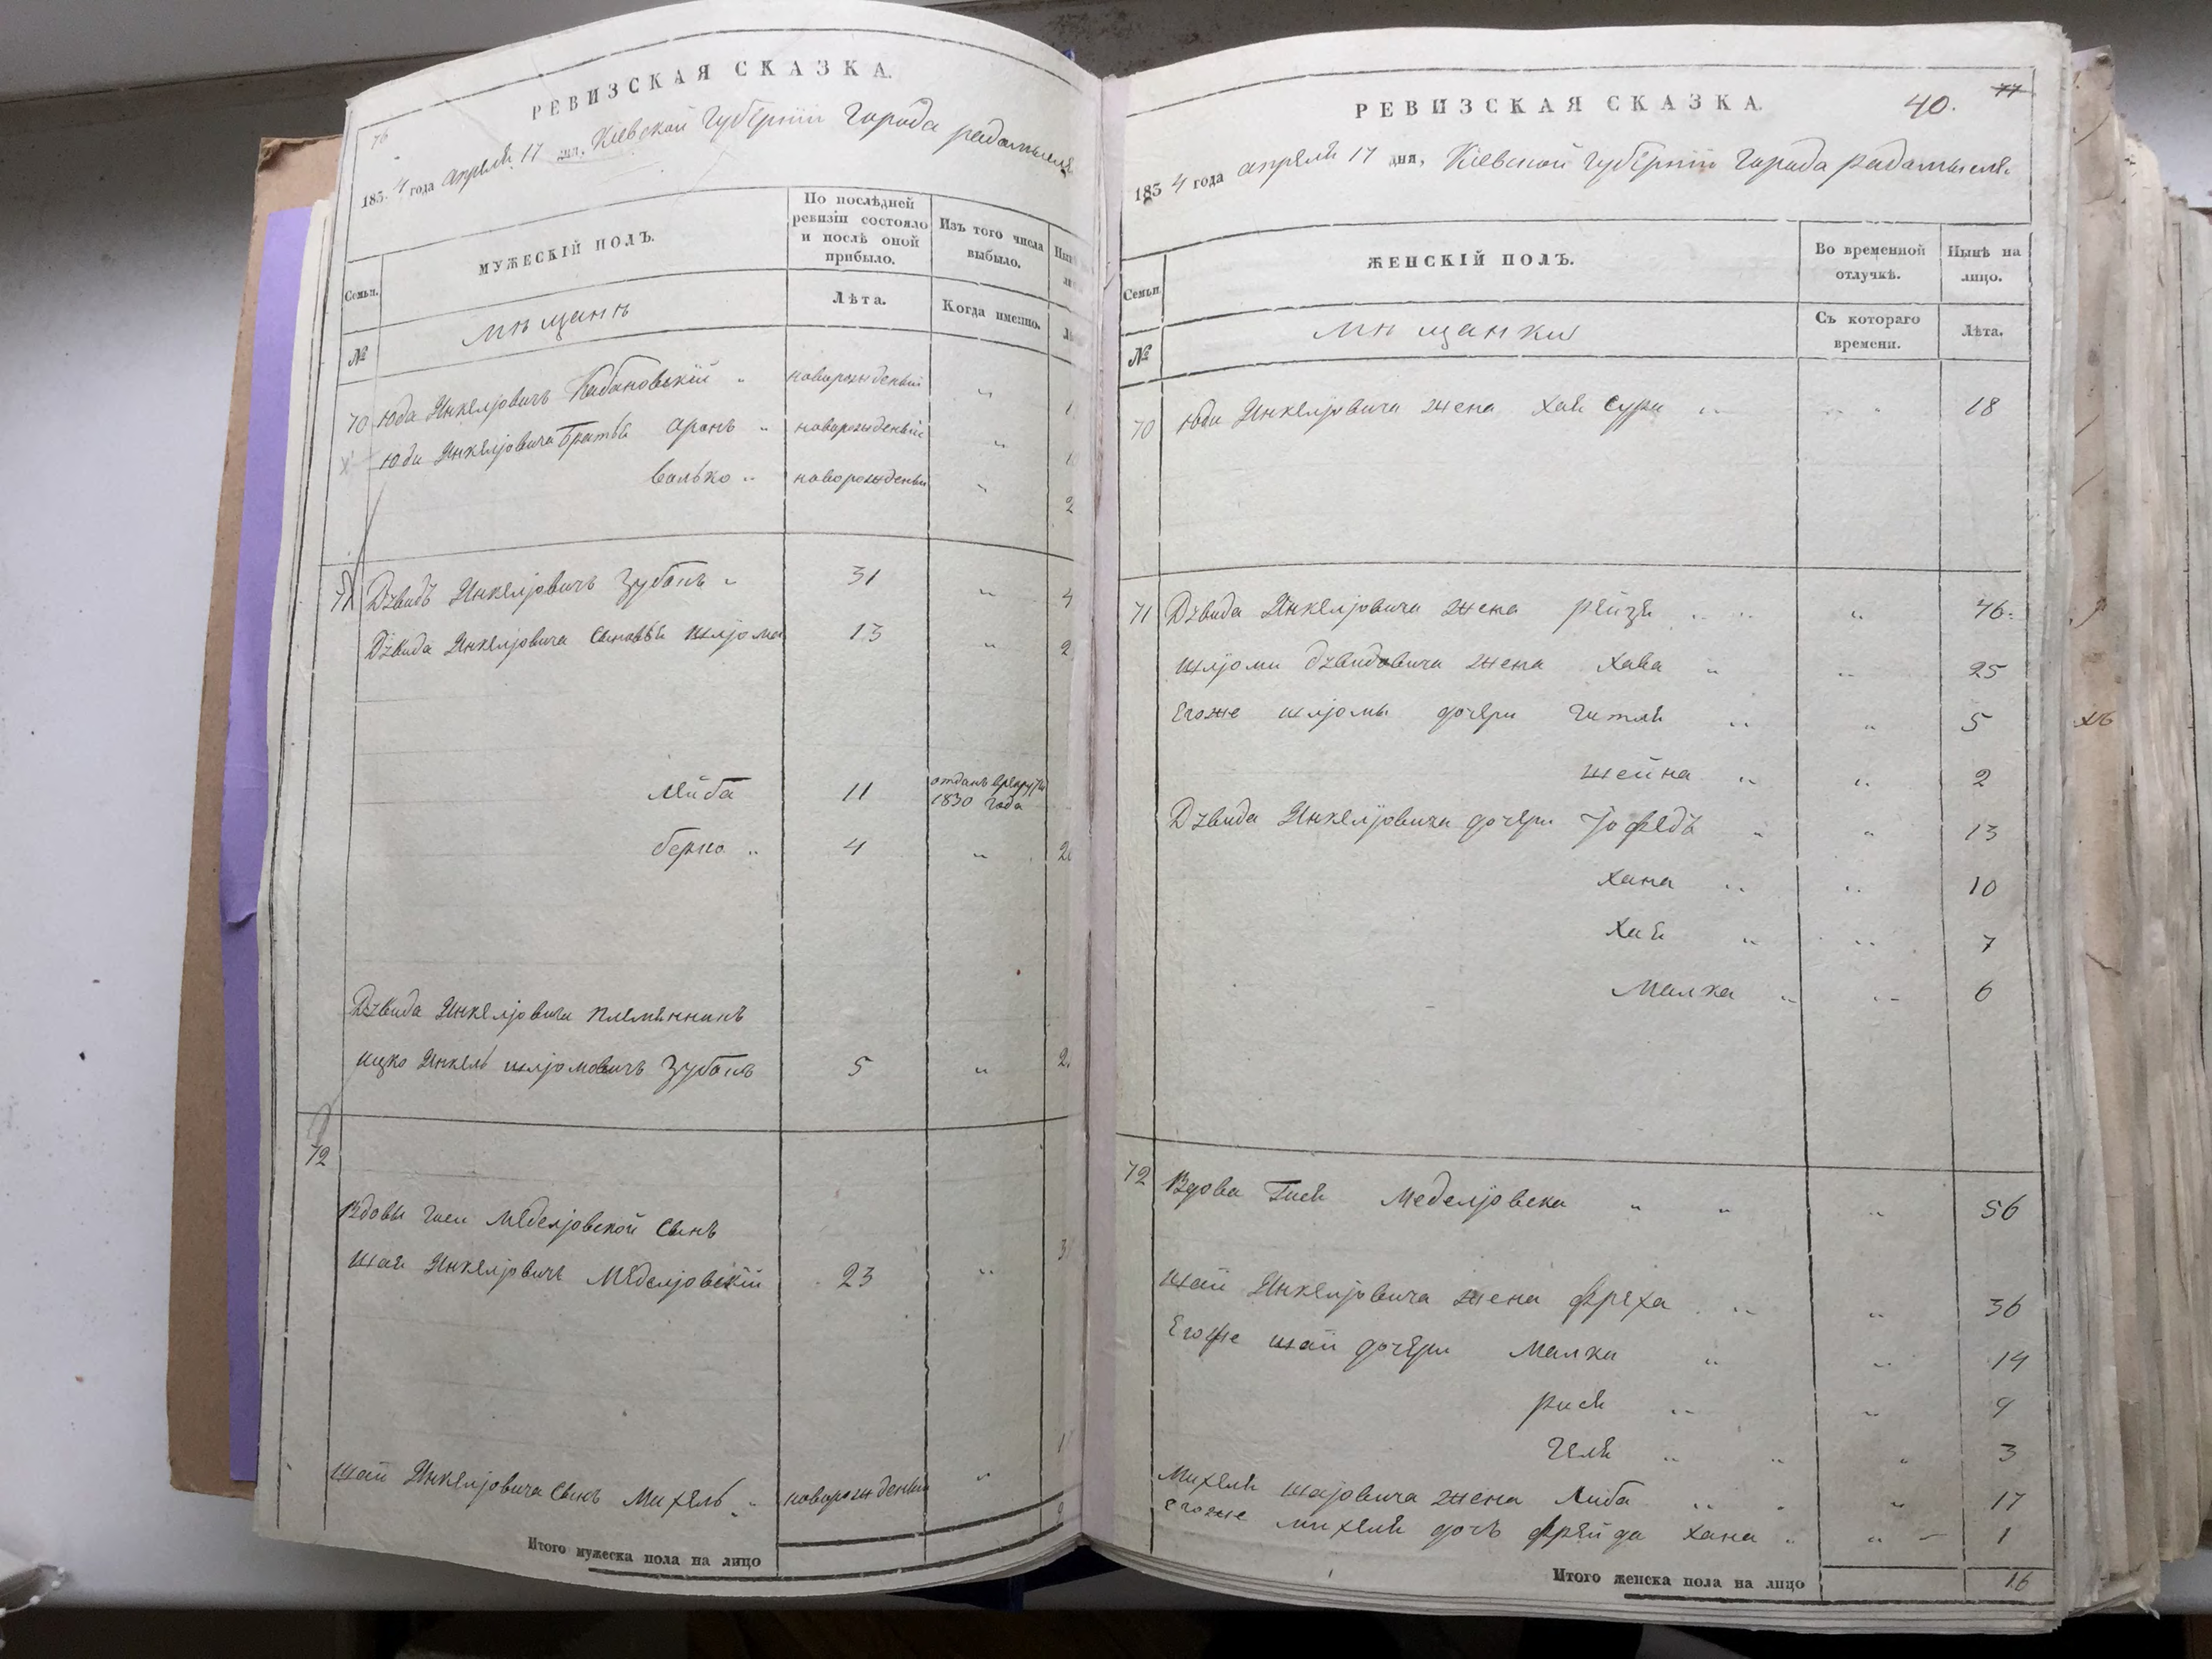 76
РЕВИЗСКАЯ СКАЗКА.
1834 года апреля 17 дня, Кіевской Губерніи Города радамысля
МУЖЕСКІЙ ПОЛЪ.
По послѣдней ревизіи состояло и послѣ оной прибыло.
Изъ того числа выбыло.
Семьи.
Лѣта.
Когда именно.
№
мѣщанѣ
70 Юда Инкелiовичъ Кабановскій " новорожденный "
Юди Инкелiовича Братья аронъ " новорожденный "
волько " новорожденный " 2
71 Дѵвидъ Инкелiовичъ Зубокъ " 31 " 4
Дѵвида Инкелiовича Сыновья шліома 13 " 2
Лейба 11 отданъ врекруты 1830 года
берко " 4 " 2
Дѵвида Инкелiовича племянникъ
ицко Инкель шліомовичъ Зубокъ 5 " 2
72
Вдовы Гиси Меделiовской Сынъ
шая Инкелiовичъ Меделiовскій 23 " 3
шаи Инкелiовича Сынъ Михель " новорожденный "
Итого мужеска пола на лицо
РЕВИЗСКАЯ СКАЗКА. 40. 77
1834 года апреля 17 дня, Кіевской Губерніи Города радамысля
Семьи.
ЖЕНСКІЙ ПОЛЪ.
Во временной отлучкѣ.
Нынѣ на лицо.
№
мѣщанки
Съ котораго времени.
Лѣта.
70 Юди Инкелiовича жена Хая Сура " " 18
71 Дѵвида Инкелiовича жена рейзя " " 46
шліоми дѵвидовича жена Хава " " 25
Егоже шліомы дочери Гитля " " 5
шейна " " 2
Дѵвида Инкелiовича дочери Іофедъ " " 13
Хана " " 10
Хая " " 7
Малка " " 6
72 Вдова Гися Меделiовска " " " 56
шаи Инкелiовича жена фрѣха " " 36
Егоже шаи дочери Малка " " 14
рися " " 9
Геля " " " 3
Михеля шаіовича жена Либа " " " 17
егоже михеля дочь фрейда хана " " 1
Итого женска пола на лицо 16